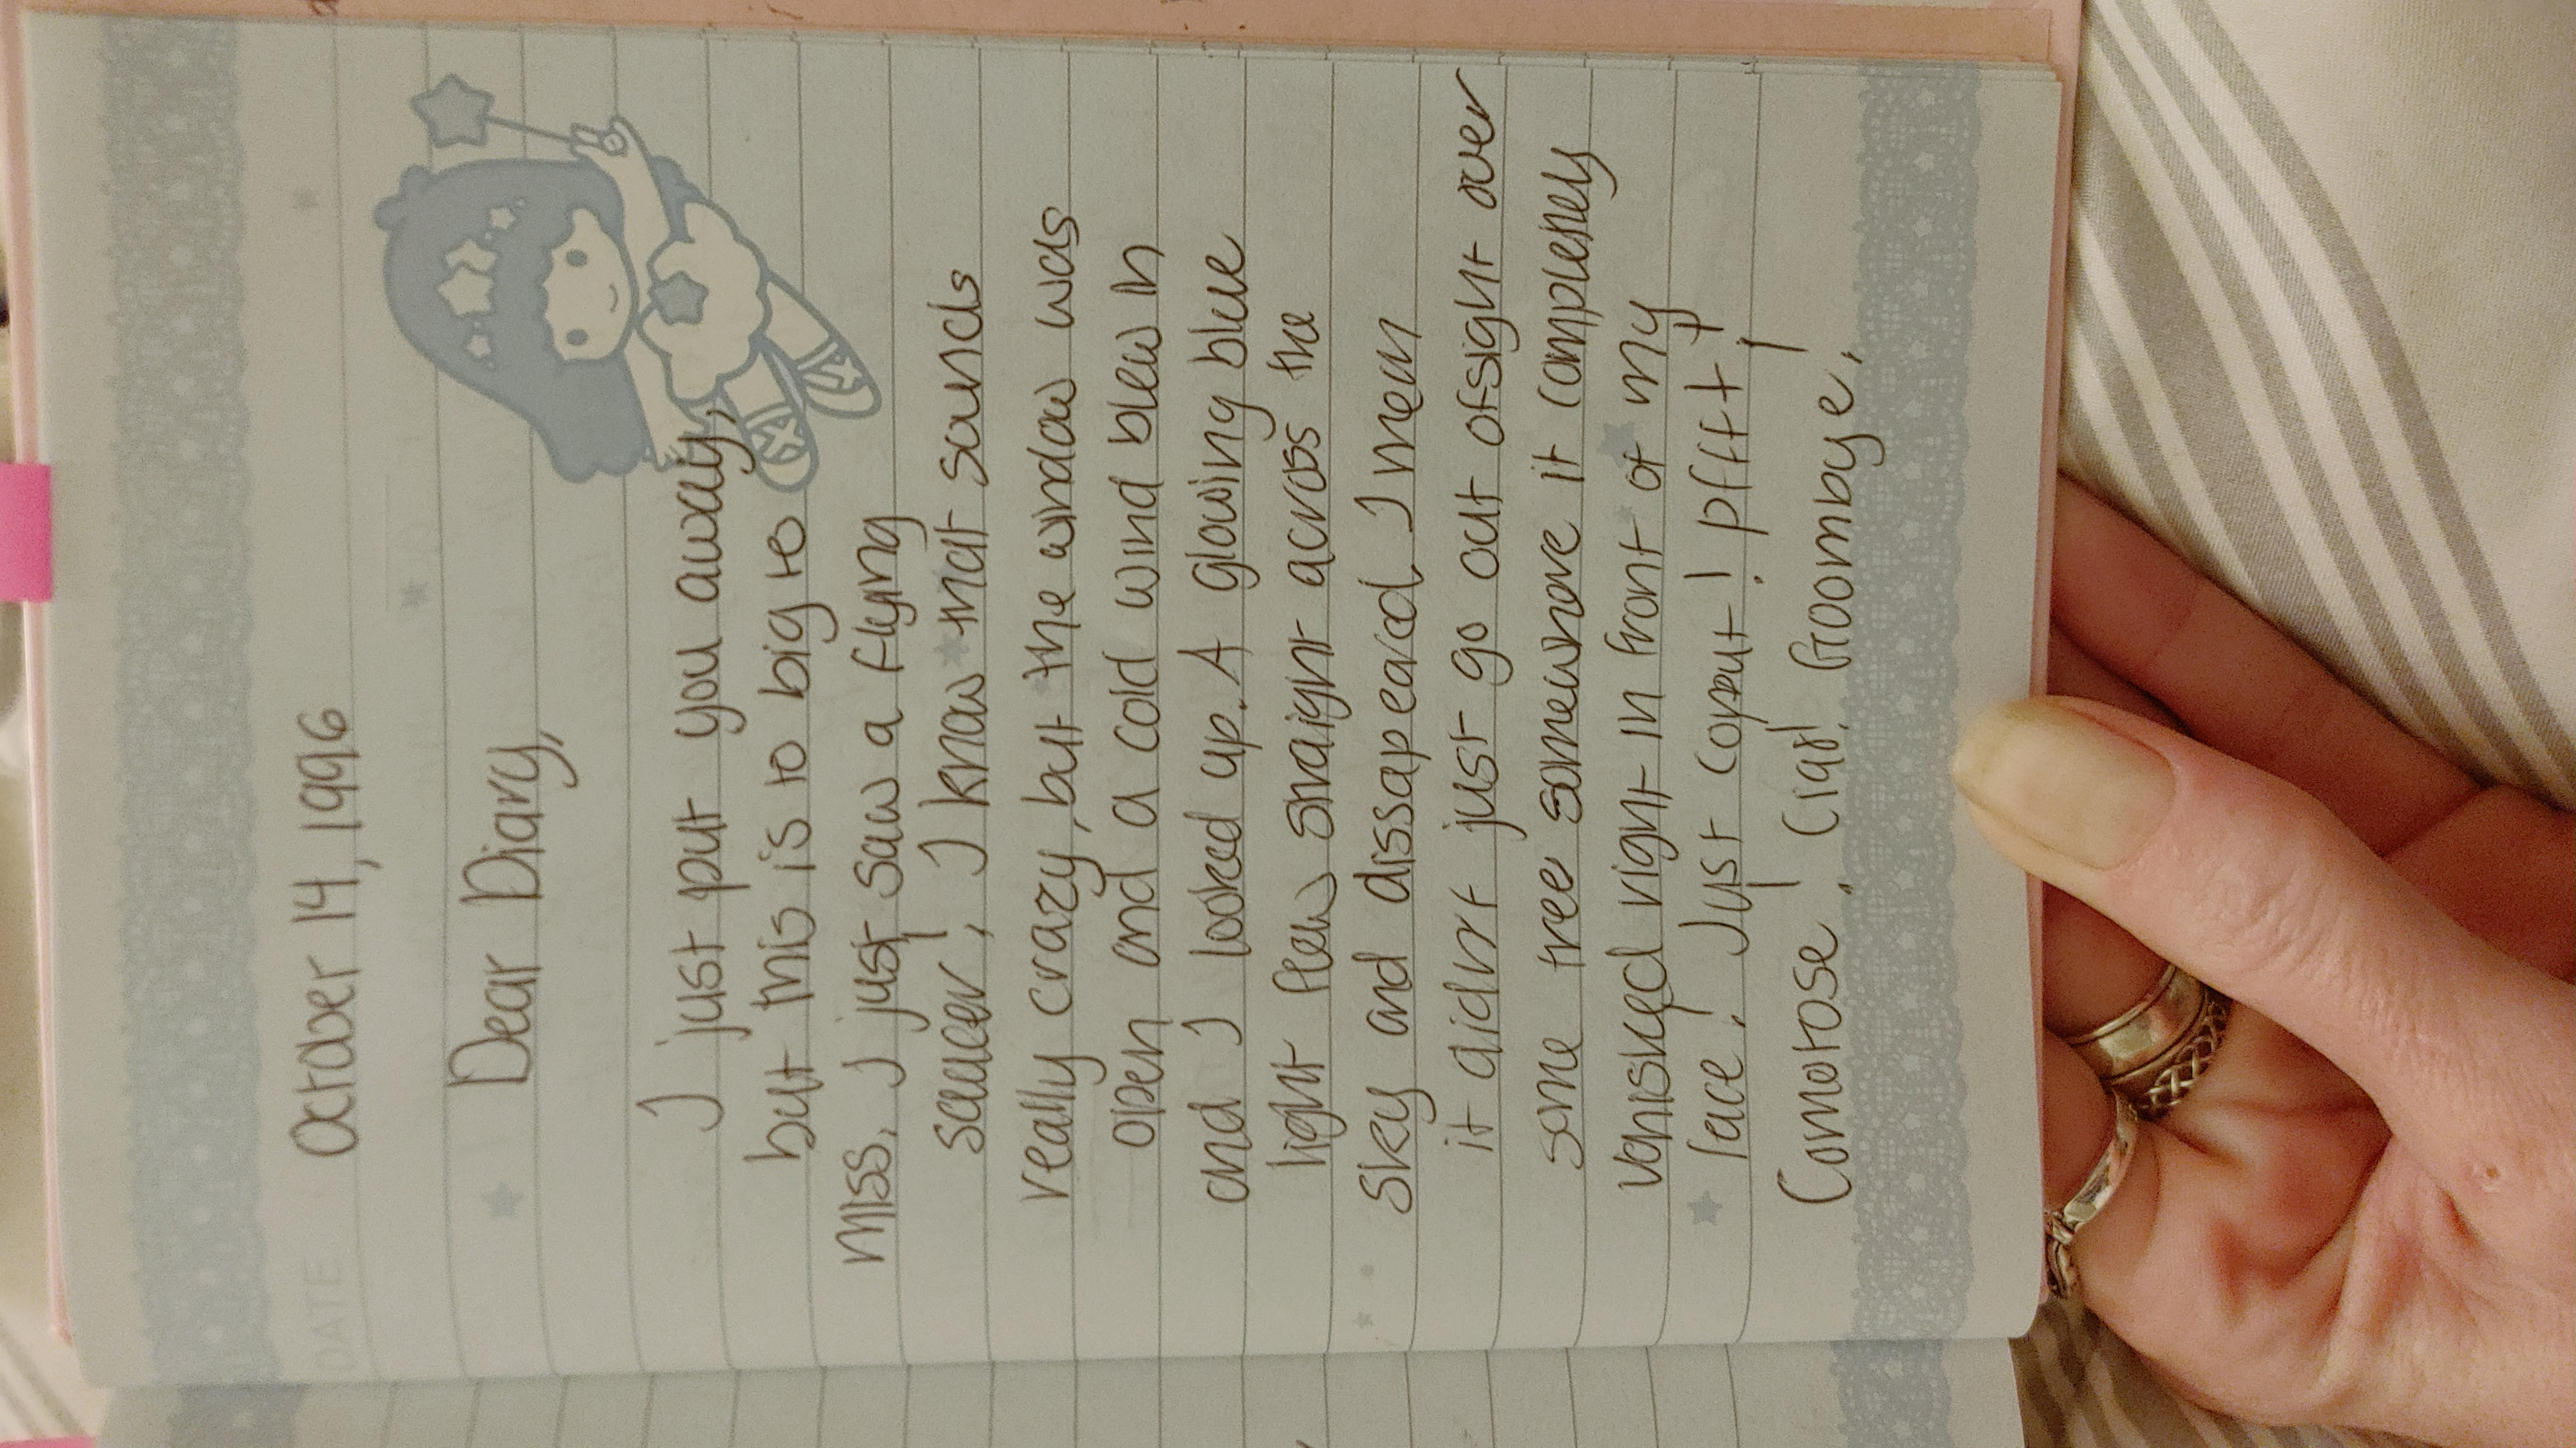 DATE
October 14, 1996
Dear Diary,
I just put you away,
but this is to big to
miss. I just saw a flying
saucer! I know that sounds
really crazy, but the window was
open and a cold wind blew in
and I looked up. A glowing blue
light flew straight across the
sky and dissapeared. I mean
it didnt just go out of sight over
some tree somewhere it completely
vanished right in front of my
face! Just caput! pfft!
Comotose! Ciao! Goombye.